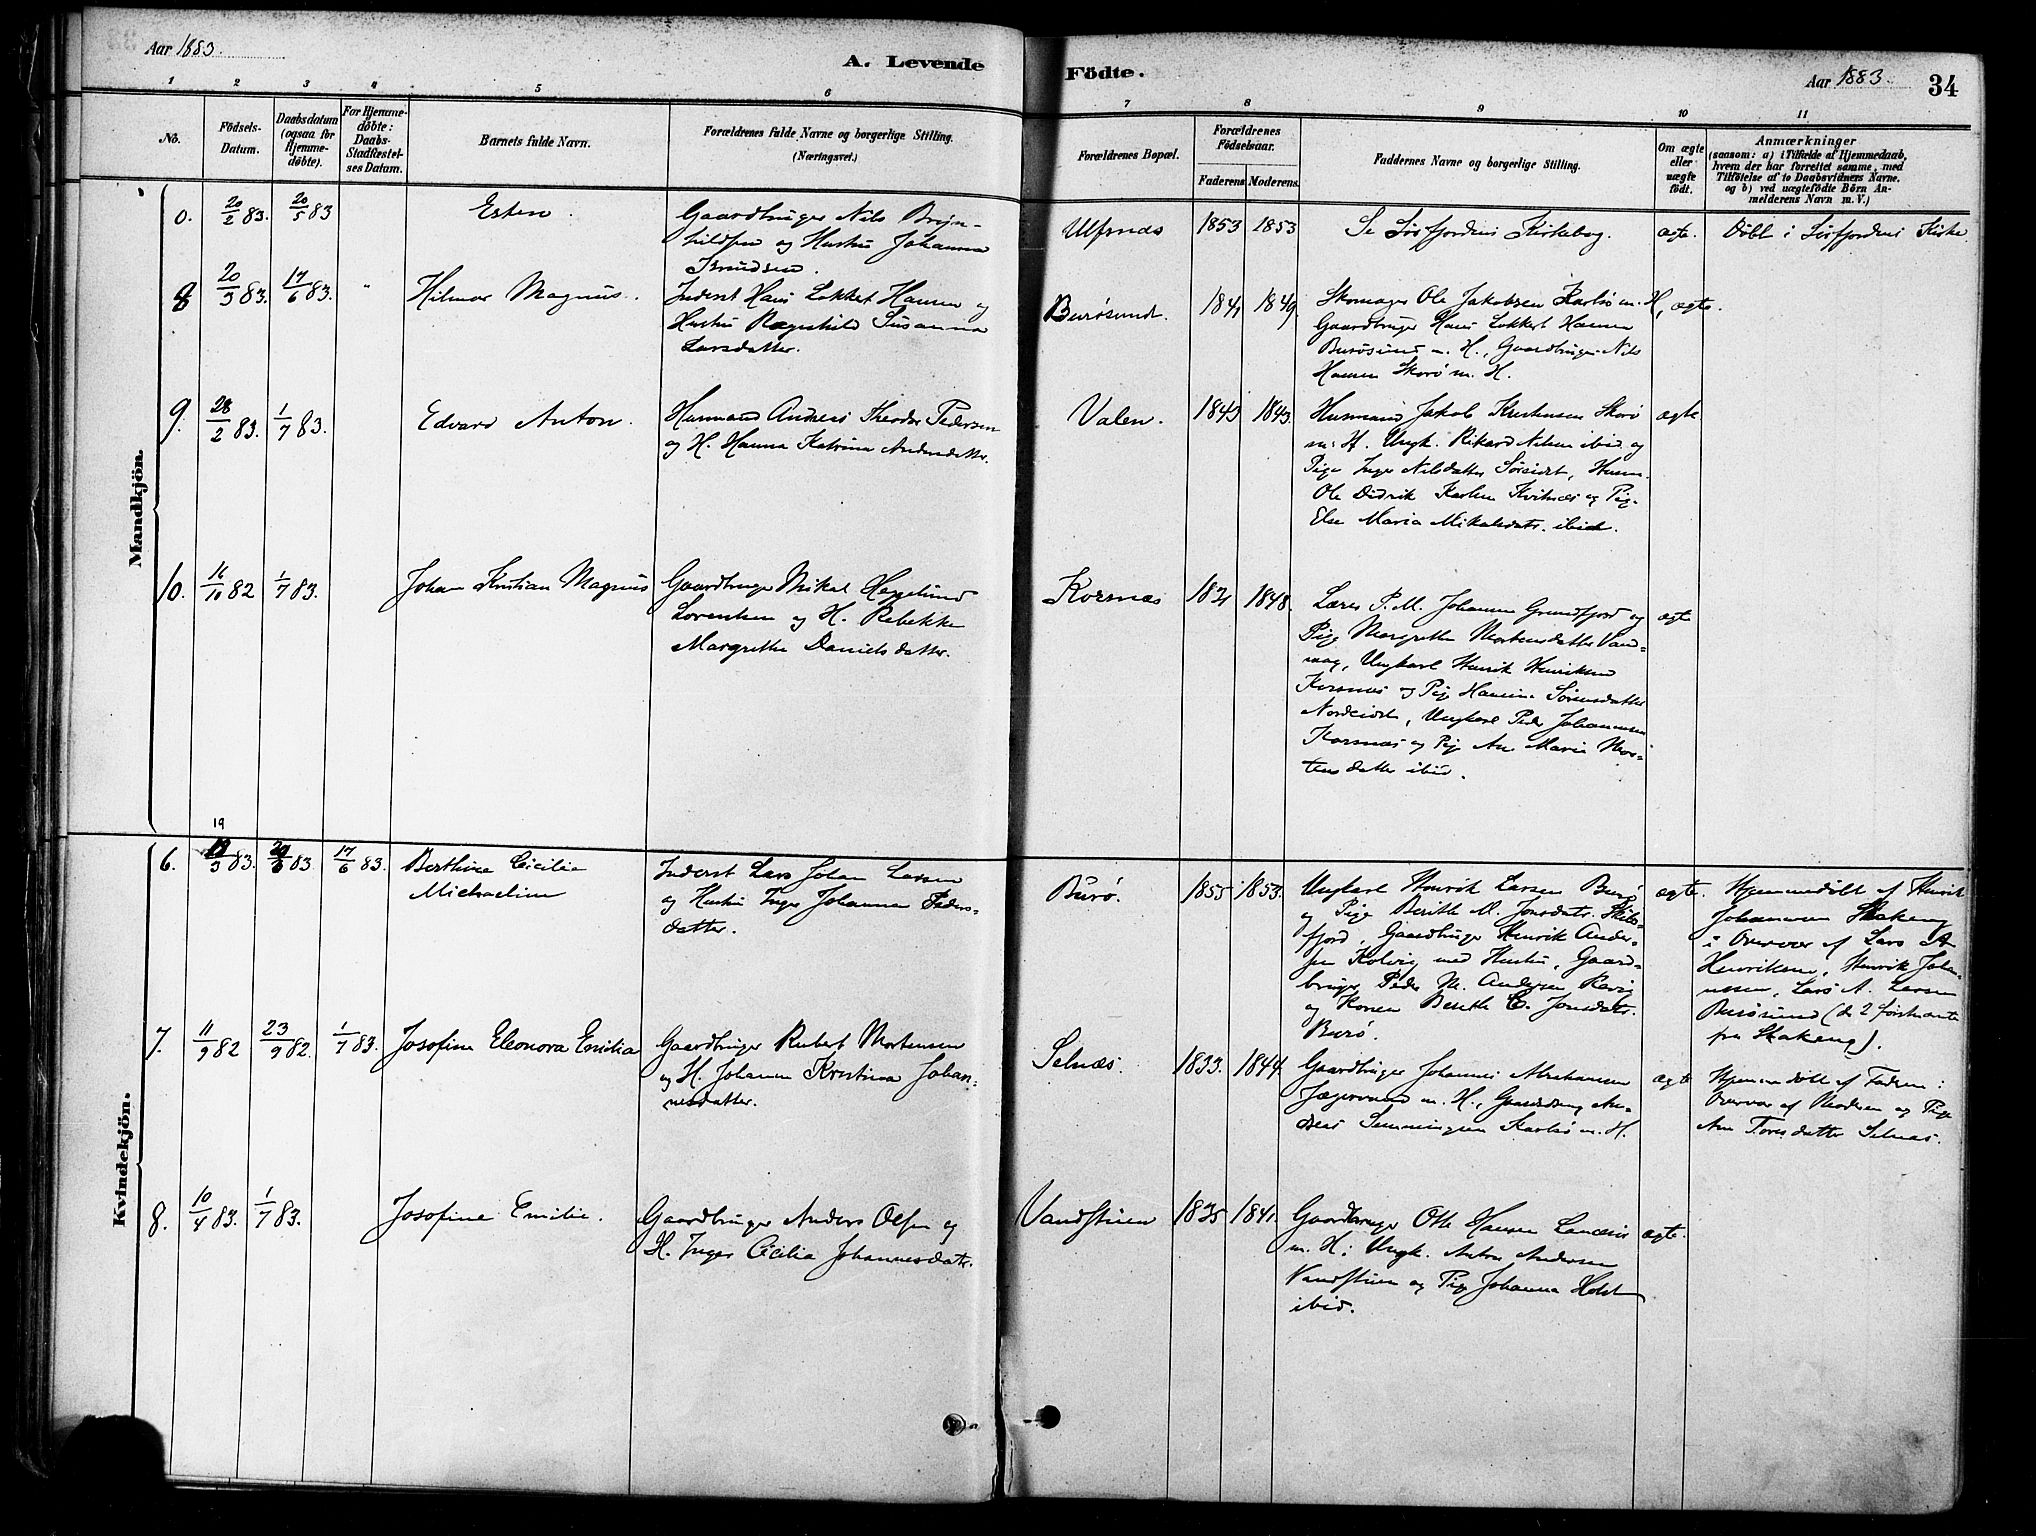 Aar 1883.
A. Levende Födte.
Aar 1883.
34
1 2 3 4 5 6 7 8 9 10 11
No.
Födsels-
Datum.
Daabsdatum
(ogsaa for
Hjemme-
döbte).
For Hjemme-
döbte:
Daabs-
Stadfæstel-
ses Datum.
Barnets fulde Navn.
Forældrenes fulde Navne og borgerlige Stilling.
(Næringsvei.)
Forældrenes Bopæl.
Forældrenes
Födselsaar.
Faderens Moderens
Faddernes Navne og borgerlige Stilling.
Om ægte
eller
uægte
födt.
Anmærkninger
(saasom: a) i Tilfælde af Hjemmedaab,
hvem der har forrettet samme, med
Tilföielse af to Daabsvidners Navne.
og b) ved uægtefödte Börn An-
melderens Navn m. V.)
Mandkjön.
0. 20/2 83. 20/5 83
Esten.
Gaardbruger Nils Bryn-
hildsen og Hustru Johanna
Knudsen.
Ulfsnæs
1853 1853
Se Sörfjordens Kirkebog.
ægte.
Döbt i Sörfjordens Kirke.
8 20/3 83. 17/6 83. "
Hilmar Magnus.
Inderst Hans Lokkert Hansen og
Hustru Ragnhild Susanna
Larsdatter.
Burösund.
1841 1849.
Skomager Ole Jakobsen Karlsö m. H,
Gaardbruger Hans Lokkert Hansen
Burösund m. H., Gaardbruger Nils
Hansen Skorö m. H.
ægte.
9. 28/2 83. 1/7 83.
Edvard Anton.
Husmand Andreas Theodor Pedersen
og H. Hanna Katrina Andersdatter.
Valen.
1843 1843.
Husmand Jakob Kristensen Skorö
m. H. Ungk. Rikard Nilsen ibid og
Pige Inger Nilsdatter Söreidet, Husm.
Ole Didrik Karlsen Kvitnæs og Pig.
Else Maria Mikalsdatr. ibid.
ægte
10. 16/10 82 1/7 83.
Johan Kristian Magnus
Gaardbruger Mikal Heggelund
Lorentsen og H. Rebekke
Margrethe Daniels datter.
Korsnæs
1831 1848.
Lærer P. M. Johansen Grundfjord og
Pige Margrethe Mortensdatter Vand-
vaag, Ungkarl Henrik Henriksen
Korsnæs og Pige Hansine Sörensdatter
Nordeidet, Ungkarl Peder Johannesen
Korsnæs og Pig. Ane Maria Mor-
tensdatter ibid.
ægte
Kvindekjön.
19
6. 19/3 83. 20/3 83 17/6 83.
Berthine Cicilie
Michaeline
Inderst Lars Johan Larsen
og Hustru Inger Johanna Peders-
datter.
Burö.
1855 1853.
Ungkarl Henrik Larsen Burö
og Pige Berithe M. Jonsdatr. Skibs-
fjord, Gaardbruger Henrik Ander-
sen Kolvig med Hustru, Gaard-
bruger Peder M. Andersen Ravig
og Konen Berithe E. Jonsdatr.
Burö.
ægte.
Hjemmedöbt af Henrik
Johannesen Skakeng
i Overvær af Lars A
Henriksen, Henrik Joha-
nnssen, Lars A. Larsen
Burösund (de 2 förstnævnte
fra Skakeng).
7. 11/9 82 23/9 82. 1/7 83.
Josofine Eleonora Emilia
Gaardbruger Rubert Mortensen
og H. Johanna Kristina Johan-
nesdatter.
Selnæs.
1833. 1844.
Gaardbruger Johannes Abrahamsen
Jægervand m. H., Gaardbrug. An-
dreas Simmingsen Karlsö m. H.
ægte
Hjemmedöbt af Faderen i
Overvær af Moderen og Pige
Ane Toresdatter Selnæs.
8. 10/4 83. 1/7 83.
Josofine Emilie.
Gaardbruger Anders Olsen og
H. Inger Cicilia Johannesdatr.
Vandstuen
1835 1841.
Gaardbruger Otto Hansen
m. H., Ungk. Anton Andersen
Vandstuen og Pige Johanna Holst
ibid.
ægte.